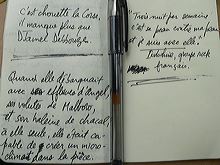 c'est chouette la Corse,
il manque plus que
Djamel Debbouze.
Quand elle débarquait
avec ses effluves d'Angel,
ses volutes de Malboro,
et son haleine de chacal,
à elle seule, elle était capa-
ble de créer un micro-
climat dans la pièce.
"Trois nuit par semaine
c'est sa peau contre ma peau
et je suis avec elle".
Indochine, groupe rock
français.